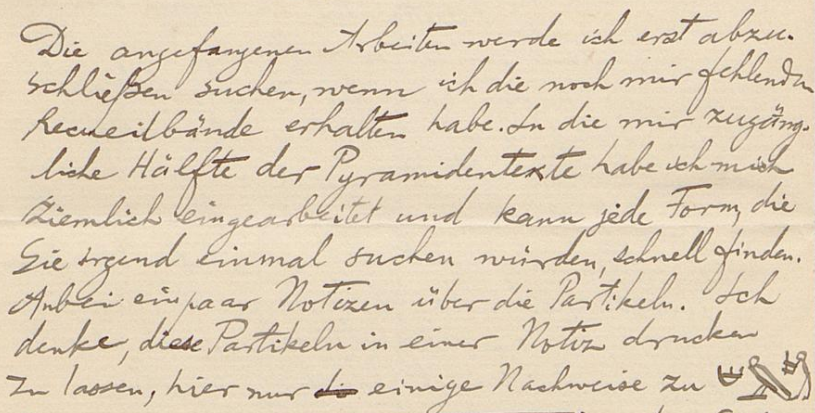 Die angefangenen Arbeiten werde ich erst abzu-
schließen suchen, wenn ich die noch mir fehlenden
Recueilbände erhalten habe. In die mir zugäng-
liche Hälfte der Pyramidentexte habe ich mich
ziemlich eingearbeitet und kann jede Form, die
Sie irgend einmal suchen würden, schnell finden.
Anbei ein paar Notizen über die Partikeln. Ich
denke, diese Partikeln in einer Notiz drucken
zu lassen, hier nur einige Nachweise zu